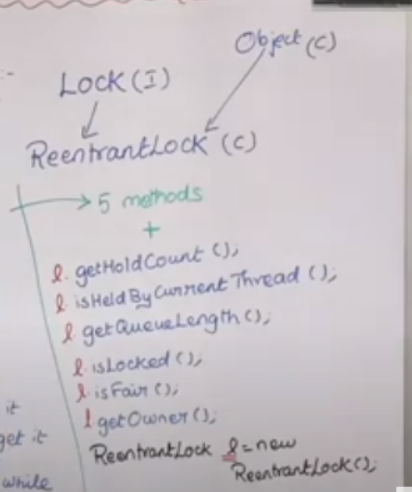 :-
Object (C)
Lock (I)
ReentrantLock (C)
5 methods
+
l. getHoldCount ();
l isHeldByCurrentThread ();
l getQueueLength();
l. isLocked ();
l. isFair ();
l. getOwner ();
ReentrantLock l = new
ReentrantLock();
it
get it
while